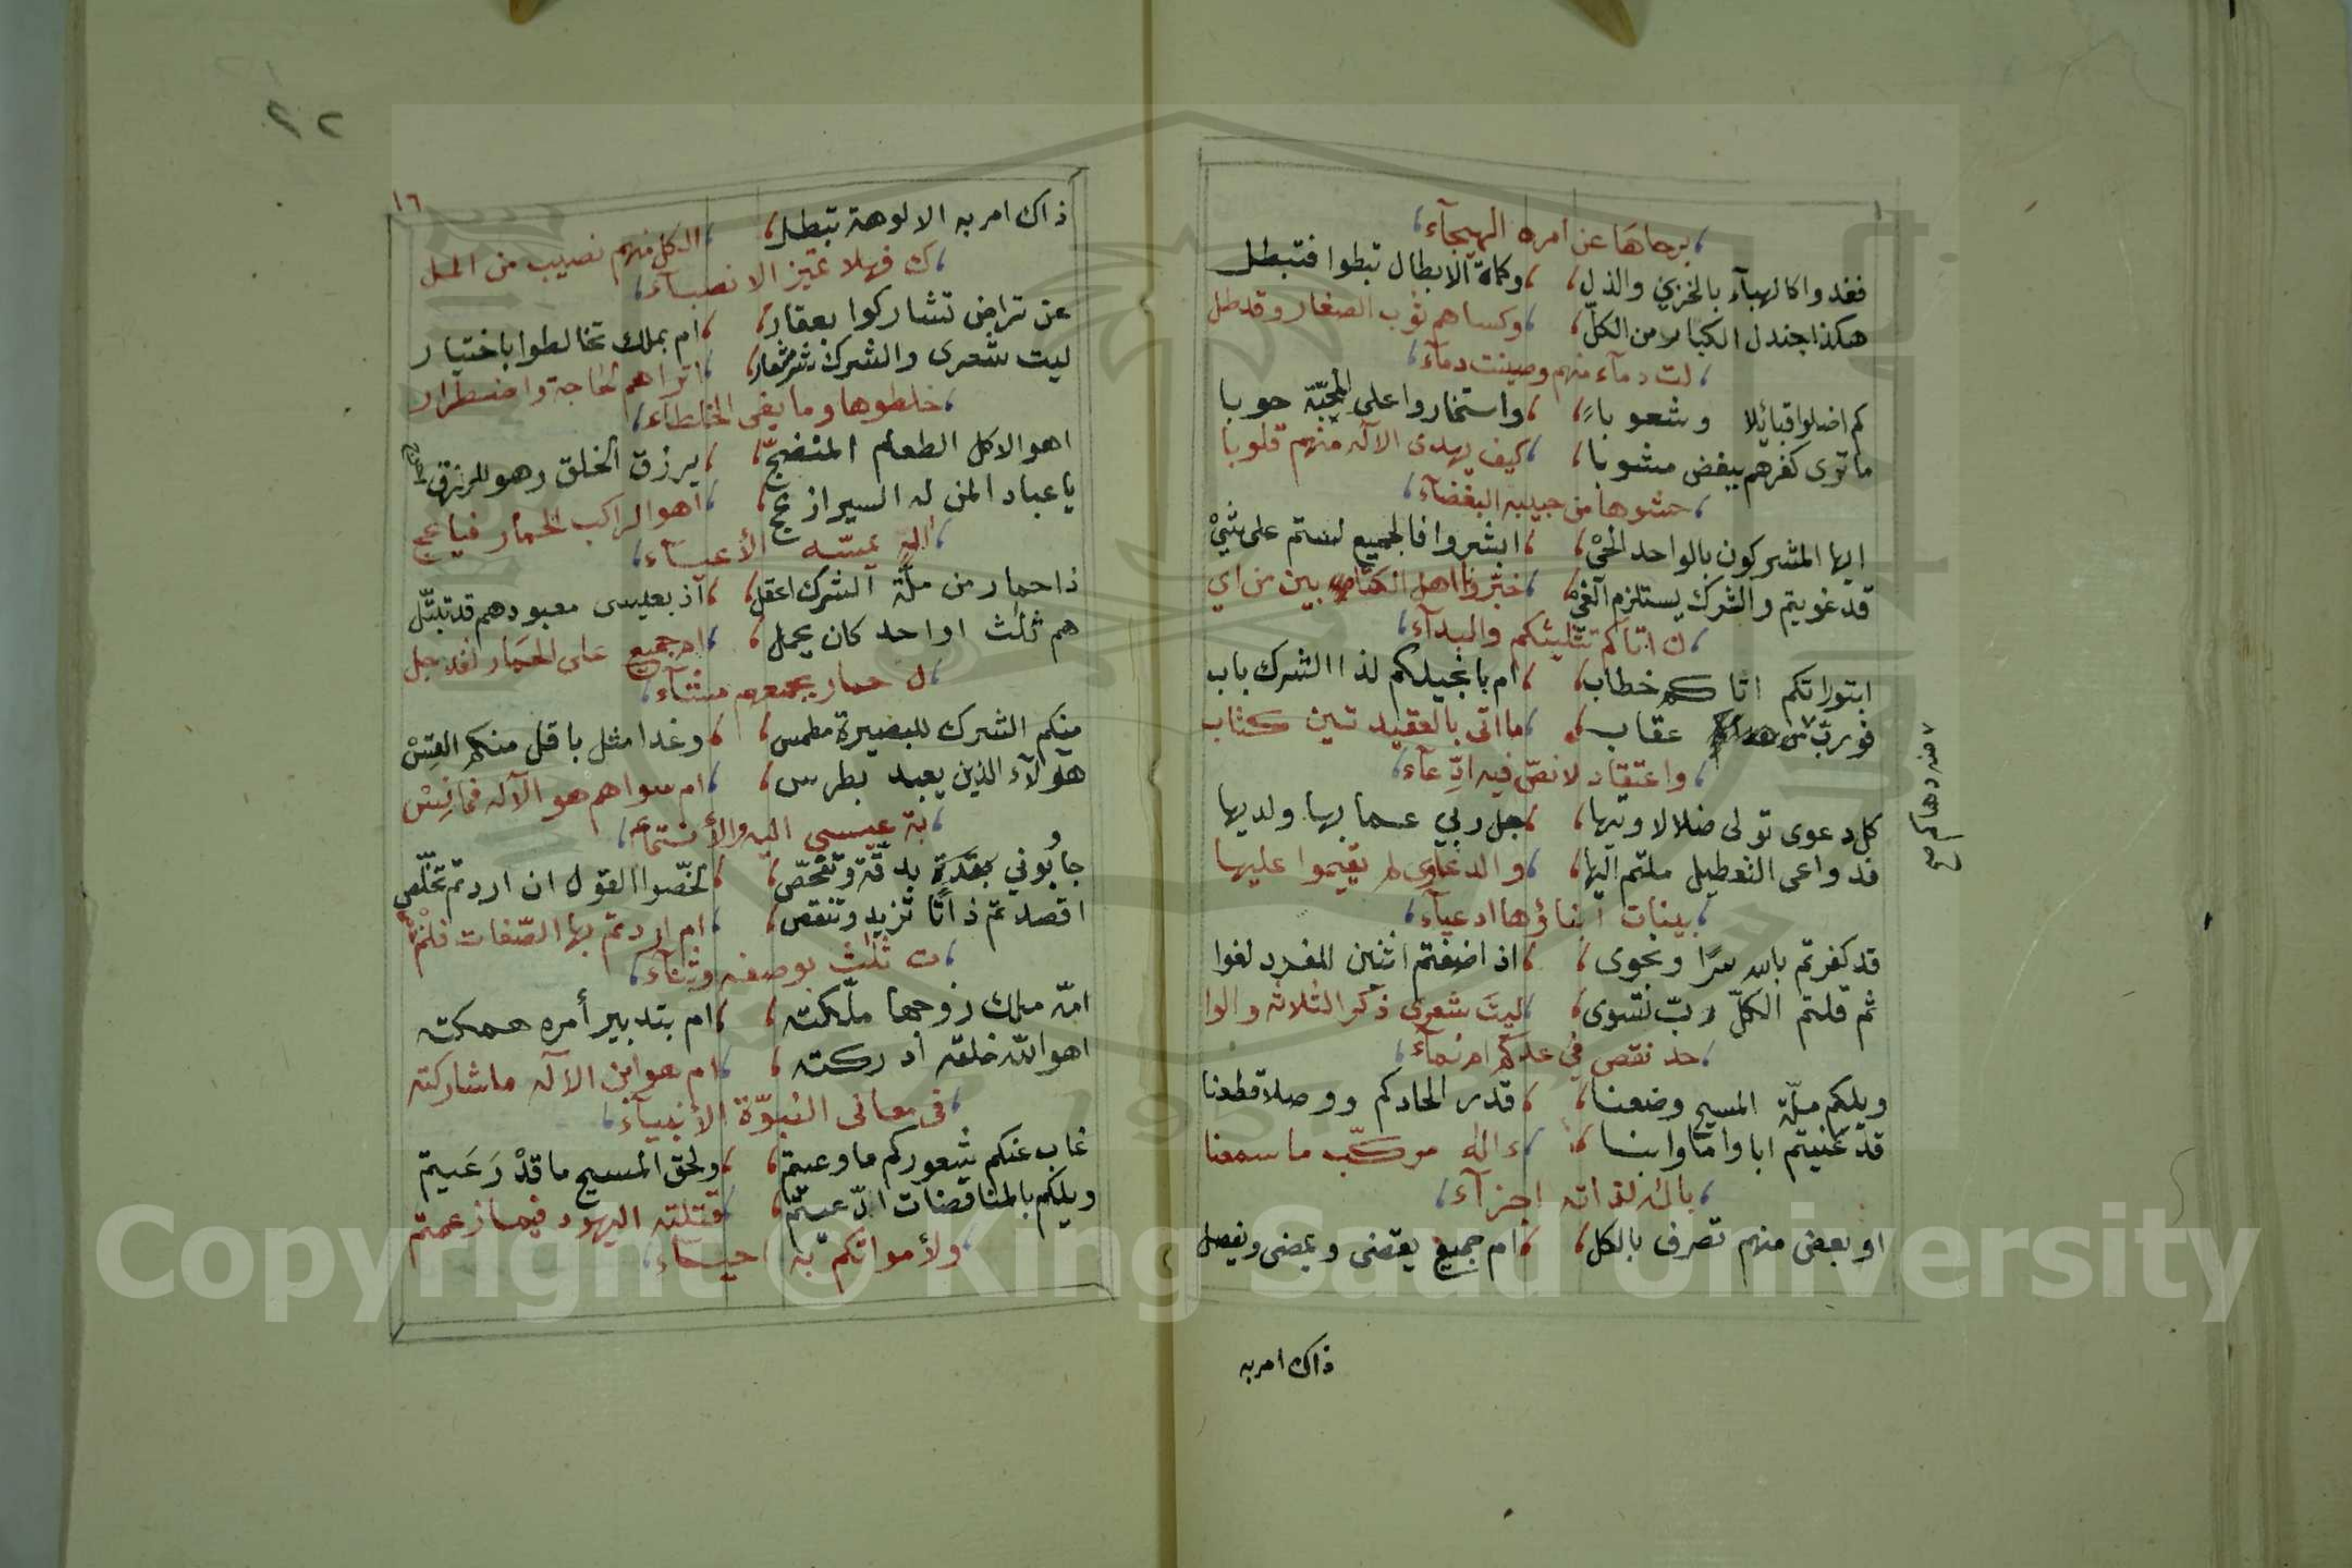 برحاها عن امره الهيجآء
فغدوا كالهبآء بالخزي والذل وكماة الابطال تبطوا فتبطل
هكذا جندل الكبار من الكلّ وكساهم ثوب الصغار وقد طل
لت دمآء منهم وصينت دمآء
كم اضلوا قبائلا وشعوباً واستخاروا على المحبّة حوبا
ما ترى كفرهم ببغض مشوبا كيف يهدى الاله منهم قلوبا
حشوها من حبيبه البغضآء
ايها المشركون بالواحد الحيْ ابشروا فالجميع لستم على شيْ
قد غويتم والشرك يستلزم الغيْ خبّرونا اهل الكتابين من اي
ن اتاكم تثليثكم والبدآء
ابتوراتكم اتاكم خطاب ام بانجيلكم لذا الشرك باب
فو ربّ من عقاب ما اتى بالعقيدتين كتاب
واعتقاد لا نصّ فيه ادّعآء
كل دعوى تولى ضلالا وتيها جل ربي عما بها ولديها
فدواعى التعطيل ملتم اليها والدعاوى لم تقيموا عليها
بينات ابناؤها ادعيآء
قد كفرتم بالله سرّا ونجوى اذ اضفتم اثنين للفرد لغوا
ثم قلتم الكلّ ربّ تسوى ليت شعرى ذكر الثلاثة والوا
حد نقص في عدّكم ام نمآء
ويلكم ملّة المسيح وضعنا قدر الحادكم ووصلا قطعنا
قد عنيتم ابا واما وابنا ءاله مركّب ما سمعنا
باله لذاته اجزآء
او بعض منهم تصرف بالكل ام جميع يقضى ويمضى ويفصل
ذاك امر به
٢٢
١٦
ذاك امر به الالوهة تبطل الكل منهم نصيب من المل
ك فهلا تميز الانصبآء
عن تراض تشاركوا بعقار ام بملك تخالطوا باختيار
ليت شعرى والشرك شر شعار اتراهم لحاجة واضطرار
خلطوها وما بغى الخلطآء
اهو الاكل الطعام المنضجّ يرزق الخلق وهو للرزق
يا عباد المن له السير ازعج اهو الراكب الحمار فيا عج
اله يمسّه الأعيآء
ذا حمار من ملّة الشرك اعقل اذ بعيسى معبودهم قد تبتّل
هم ثلث او احد كان يحمل ام جميع على الحمار لقد جل
ل حمار بجمعهم مشّآء
منكم الشرك للبصيرة مطمس وغدا مثل باقل منكم القسْ
هٰؤلآء الذين يعبد بطرس ام سواهم هو الاله فما نِسْ
بة عيسى اليه والأنتمآء
جاوبوني بفكرة بدقّة وتفحّص لخّصوا القول ان اردتم تخلّص
اقصدتم ذاتًا تزيد وتنقص ام اردتم بها الصّفات فلم
ت ثلث بوصفه وثنآء
امّه ملك زوجها ملّكته ام بتدبير أمره همكته
اهو الله خلقه أدركته ام هو ابن الاله ما شاركته
فى معانى النبوّة الأنبيآء
غاب عنكم شعوركم ما وعيتم ولحق المسيح ما قدْ رَعَيتم
ويلكم بالمناقضات ادّعيتم قتلته اليهود فيما زعمتم
ولأمواتكم به احيآء
Copyright © King Saud University